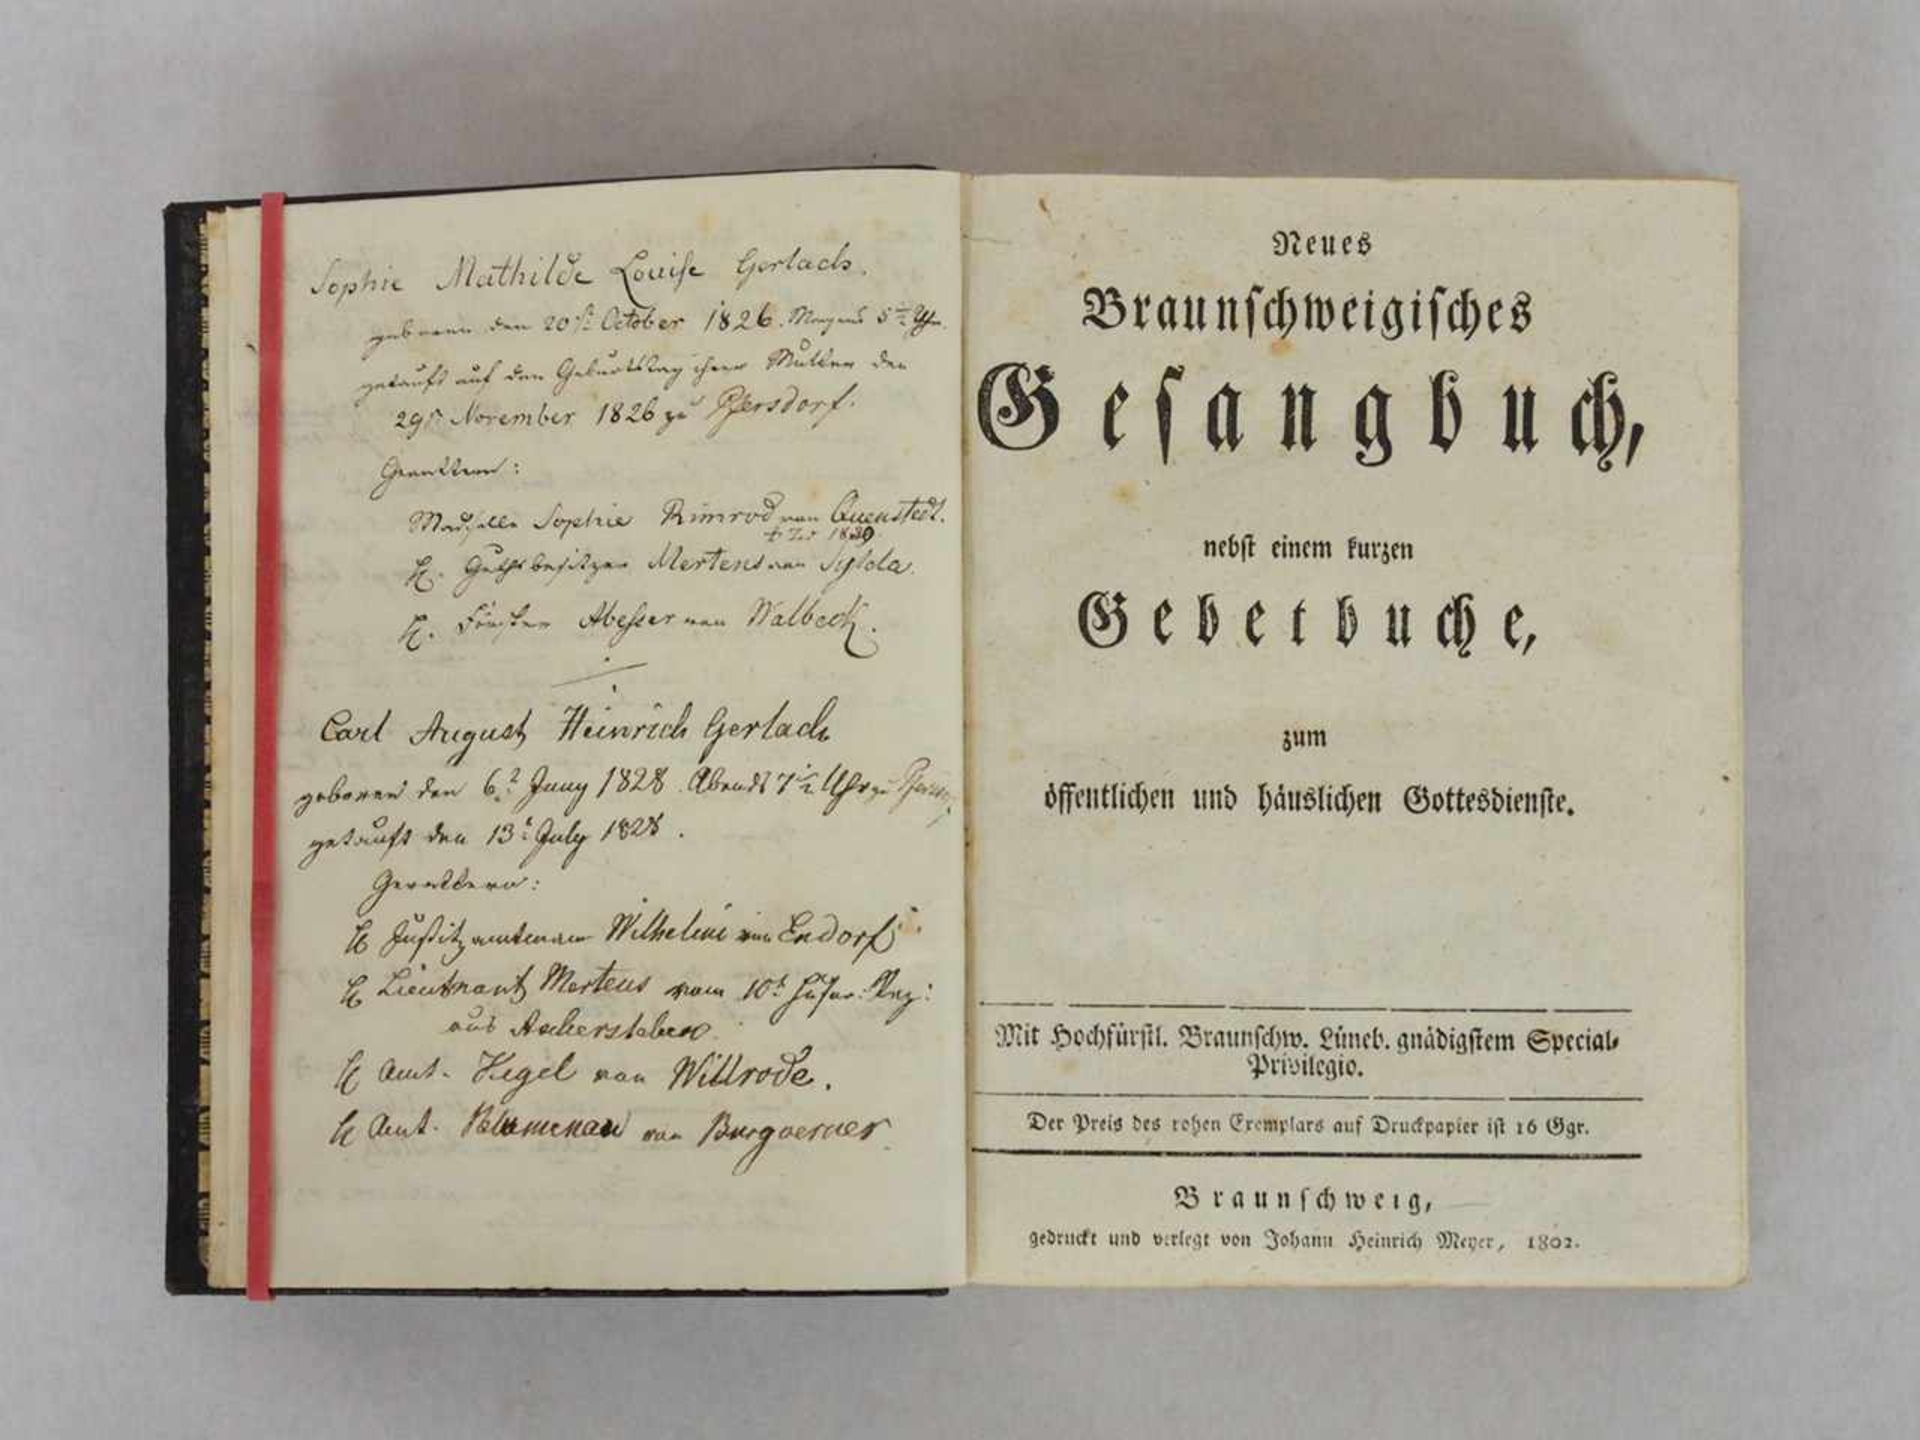 Sophie Mathilde Louise Gerlach.
geboren den 20st. October 1826. Morgens 5 ½ Uhr.
getauft auf den Geburtstag ihrer Mutter den
29st. November 1826 zu
Gevattern:
Sophie Rimrod von Quenstedt.
H. Guthsbesitzer Mertens von Sylda.
H. Förster Abesser von Walbeck.
Carl August Heinrich Gerlach
geboren den 6t. Juny 1828. Abends 7 ½ Uhr zu
getauft den 13t. July 1828.
Gevattern:
H Justitzamtmann Wilhelmi von Endorf.
H Lieutnant Mertens vom 10t. Husar: Reg:
aus Aschersleben.
H Amt. Kegel von Willrode.
H Amt. Blumenau von Burgoerner.
Neues
Braunſchweigiſches
Geſangbuch,
nebſt einem kurzen
Gebetbuche,
zum
öffentlichen und häuslichen Gottesdienſte.
Mit Hochfürſtl. Braunſchw. Lüneb. gnädigſtem Special-
Privilegio.
Der Preis des rohen Exemplars auf Druckpapier iſt 16 Ggr.
Braunſchweig,
gedruckt und verlegt von Johann Heinrich Meyer, 1802.